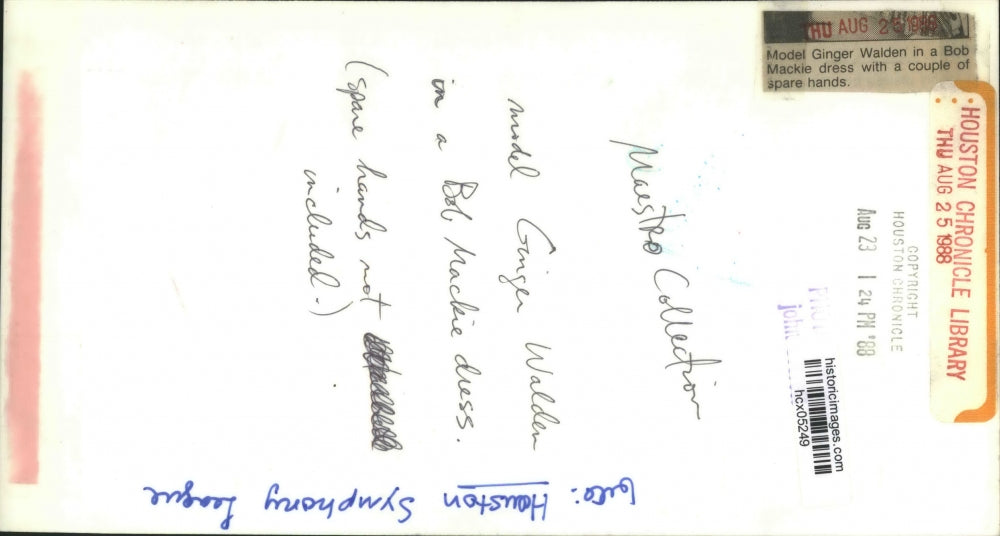 THU AUG 25 1988
Model Ginger Walden in a Bob
Mackie dress with a couple of
spare hands.
HOUSTON CHRONICLE LIBRARY
THU AUG 25 1988
COPYRIGHT
HOUSTON CHRONICLE
AUG 23 1 24 PM '88
historicimages.com
hcx05249
Maestro Collection
model Ginger Walden
in a Bob Mackie dress.
(spare hands not
included.)
Houston Symphony League